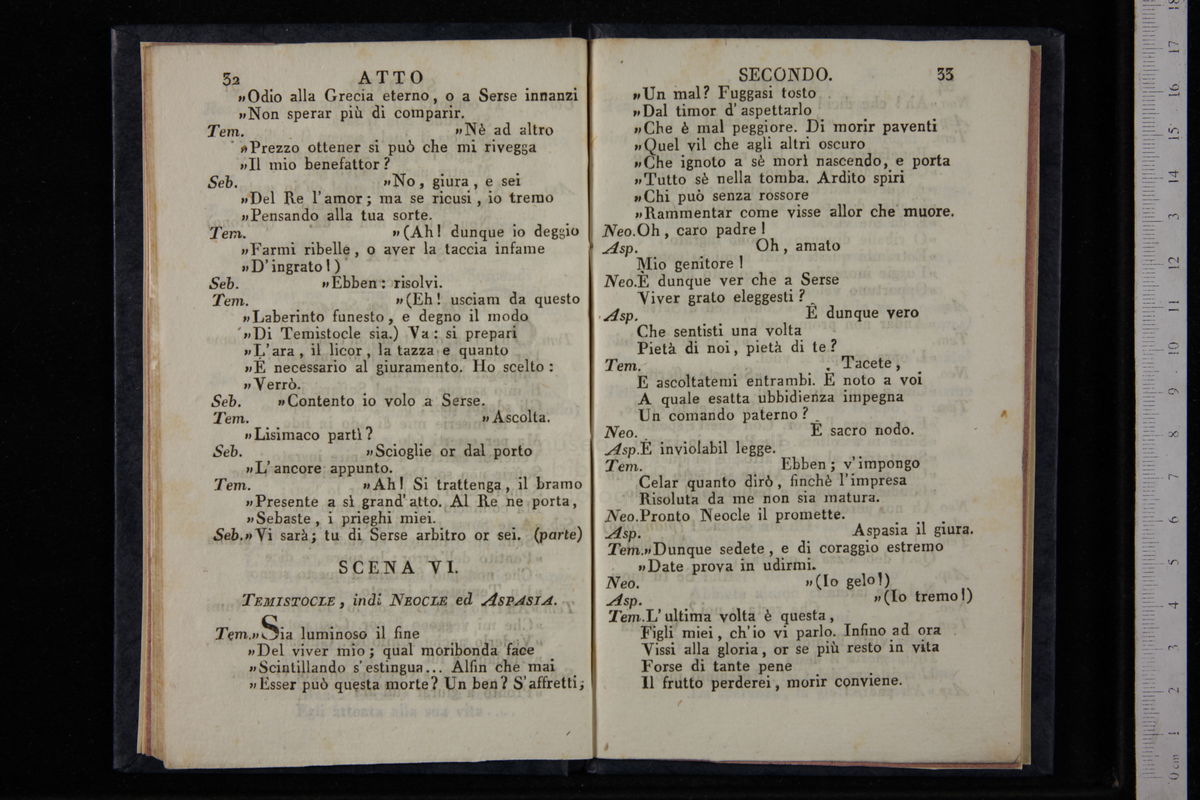 32 ATTO
„Odio alla Grecia eterno, o a Serse innanzi
„Non sperar più di comparir.
Tem. „Nè ad altro
„Prezzo ottener si può che mi rivegga
„Il mio benefattor?
Seb. „No, giura, e sei
„Del Re l'amor; ma se ricusi, io tremo
„Pensando alla tua sorte.
Tem. „(Ah! dunque io deggio
„Farmi ribelle, o aver la taccia infame
„D'ingrato!)
Seb. „Ebben: risolvi.
Tem. „(Eh! usciam da questo
„Laberinto funesto, e degno il modo
„Di Temistocle sia.) Va: si prepari
„L'ara, il licor, la tazza e quanto
„È necessario al giuramento. Ho scelto:
„Verrò.
Seb. „Contento io volo a Serse.
Tem. „Ascolta.
„Lisimaco partì?
Seb. „Scioglie or dal porto
„L'ancore appunto.
Tem. „Ah! Si trattenga, il bramo
„Presente a sì grand'atto. Al Re ne porta,
„Sebaste, i prieghi miei.
Seb.„Vi sarà; tu di Serse arbitro or sei. (parte)
SCENA VI.
TEMISTOCLE, indi NEOCLE ed ASPASIA.
Tem.„Sia luminoso il fine
„Del viver mio; qual moribonda face
„Scintillando s'estingua... Alfin che mai
„Esser può questa morte? Un ben? S'affretti;
SECONDO. 33
„Un mal? Fuggasi tosto
„Dal timor d'aspettarlo
„Che è mal peggiore. Di morir paventi
„Quel vil che agli altri oscuro
„Che ignoto a sè morì nascendo, e porta
„Tutto sè nella tomba. Ardito spiri
„Chi può senza rossore
„Rammentar come visse allor che muore.
Neo.Oh, caro padre!
Asp. Oh, amato
Mio genitore!
Neo.È dunque ver che a Serse
Viver grato eleggesti?
Asp. È dunque vero
Che sentisti una volta
Pietà di noi, pietà di te?
Tem. Tacete,
E ascoltatemi entrambi. È noto a voi
A quale esatta ubbidienza impegna
Un comando paterno?
Neo. È sacro nodo.
Asp.È inviolabil legge.
Tem. Ebben; v'impongo
Celar quanto dirò, finchè l'impresa
Risoluta da me non sia matura.
Neo.Pronto Neocle il promette.
Asp. Aspasia il giura.
Tem.„Dunque sedete, e di coraggio estremo
„Date prova in udirmi.
Neo. „(Io gelo!)
Asp. „(Io tremo!)
Tem.L'ultima volta è questa,
Figli miei, ch'io vi parlo. Infino ad ora
Vissi alla gloria, or se più resto in vita
Forse di tante pene
Il frutto perderei, morir conviene.